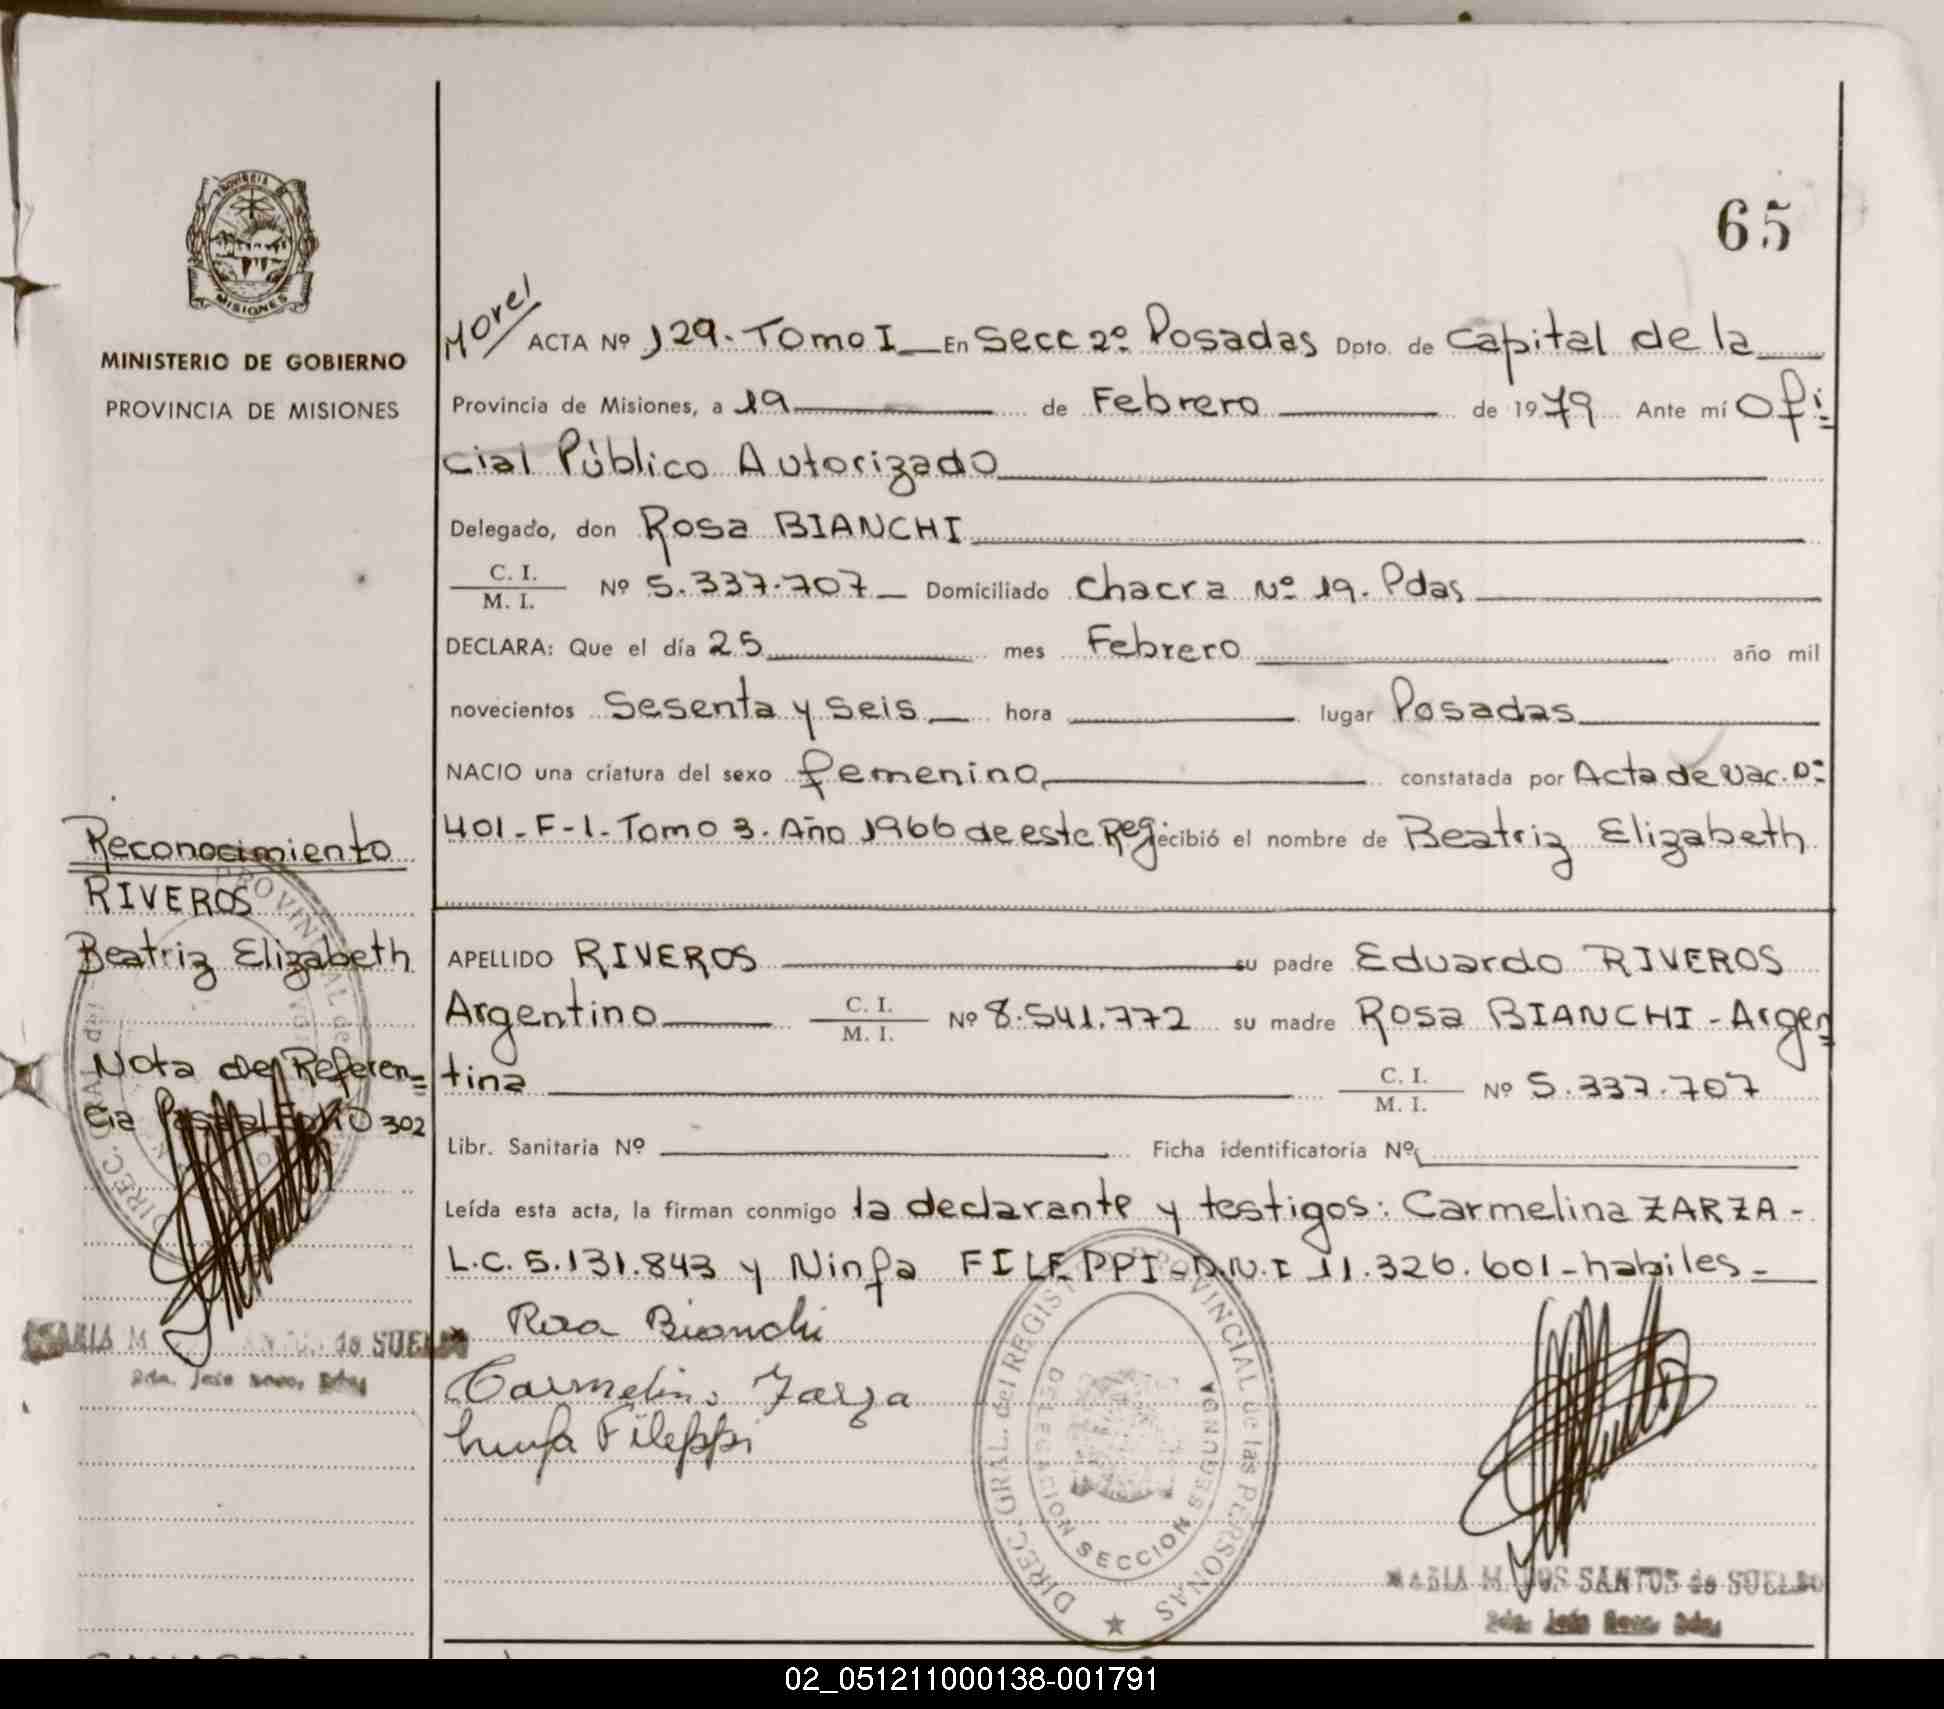 PROVINCIA DE
MISIONES
MINISTERIO DE GOBIERNO
PROVINCIA DE MISIONES
65
Morel ACTA Nº 129. Tomo I En Secc 2º Posadas Dpto. de Capital de la
Provincia de Misiones, a 19 de Febrero de 1979 Ante mí Ofi=
cial Público Autorizado
Delegado, don Rosa BIANCHI
C. I.
M. I. Nº 5.337.707 Domiciliado Chacra Nº 19. Pdas
DECLARA: Que el día 25 mes Febrero año mil
novecientos Sesenta y seis hora lugar Posadas
NACIO una criatura del sexo femenino constatada por Acta de Nac. nº
401-F-1-Tomo 3. Año 1966 de este Reg recibió el nombre de Beatriz Elizabeth
APELLIDO RIVEROS su padre Eduardo RIVEROS
Argentino C. I.
M. I. Nº 8.541.772 su madre Rosa BIANCHI - Argen=
tina C. I.
M. I. Nº 5.337.707
Libr. Sanitaria Nº Ficha identificatoria Nº
Leída esta acta, la firman conmigo la declarante y testigos: Carmelina ZARZA-
L.C. 5.131.843 y Ninfa FILEPPI-D.N.I 11.326.601-habiles-
Rosa Bianchi
Carmelina Zarza
Ninfa Fileppi
DIREC. GRAL. del REGISTRO PROVINCIAL de las PERSONAS
DELEGACION SECCION SEGUNDA
MARIA M. DOS SANTOS de SUELDO
Reconocimiento
RIVEROS
Beatriz Elizabeth
Nota de Referen=
cia Folio 302
MARIA M SANTOS de SUELDO
02_051211000138-001791